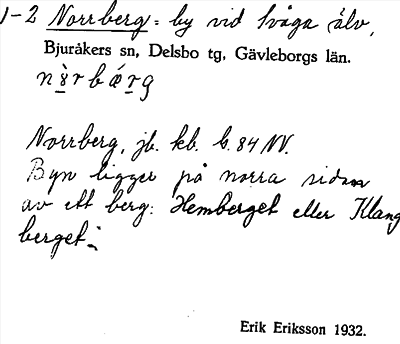 1-2 Norrberg: by vid Svåga älv,
Bjuråkers sn, Delsbo tg, Gävleborgs län.
Norrberg, jb. kb. b. 84 NV.
Byn ligger på norra sidan
av ett berg: Hemberget eller Klang
berget.
Erik Eriksson 1932.